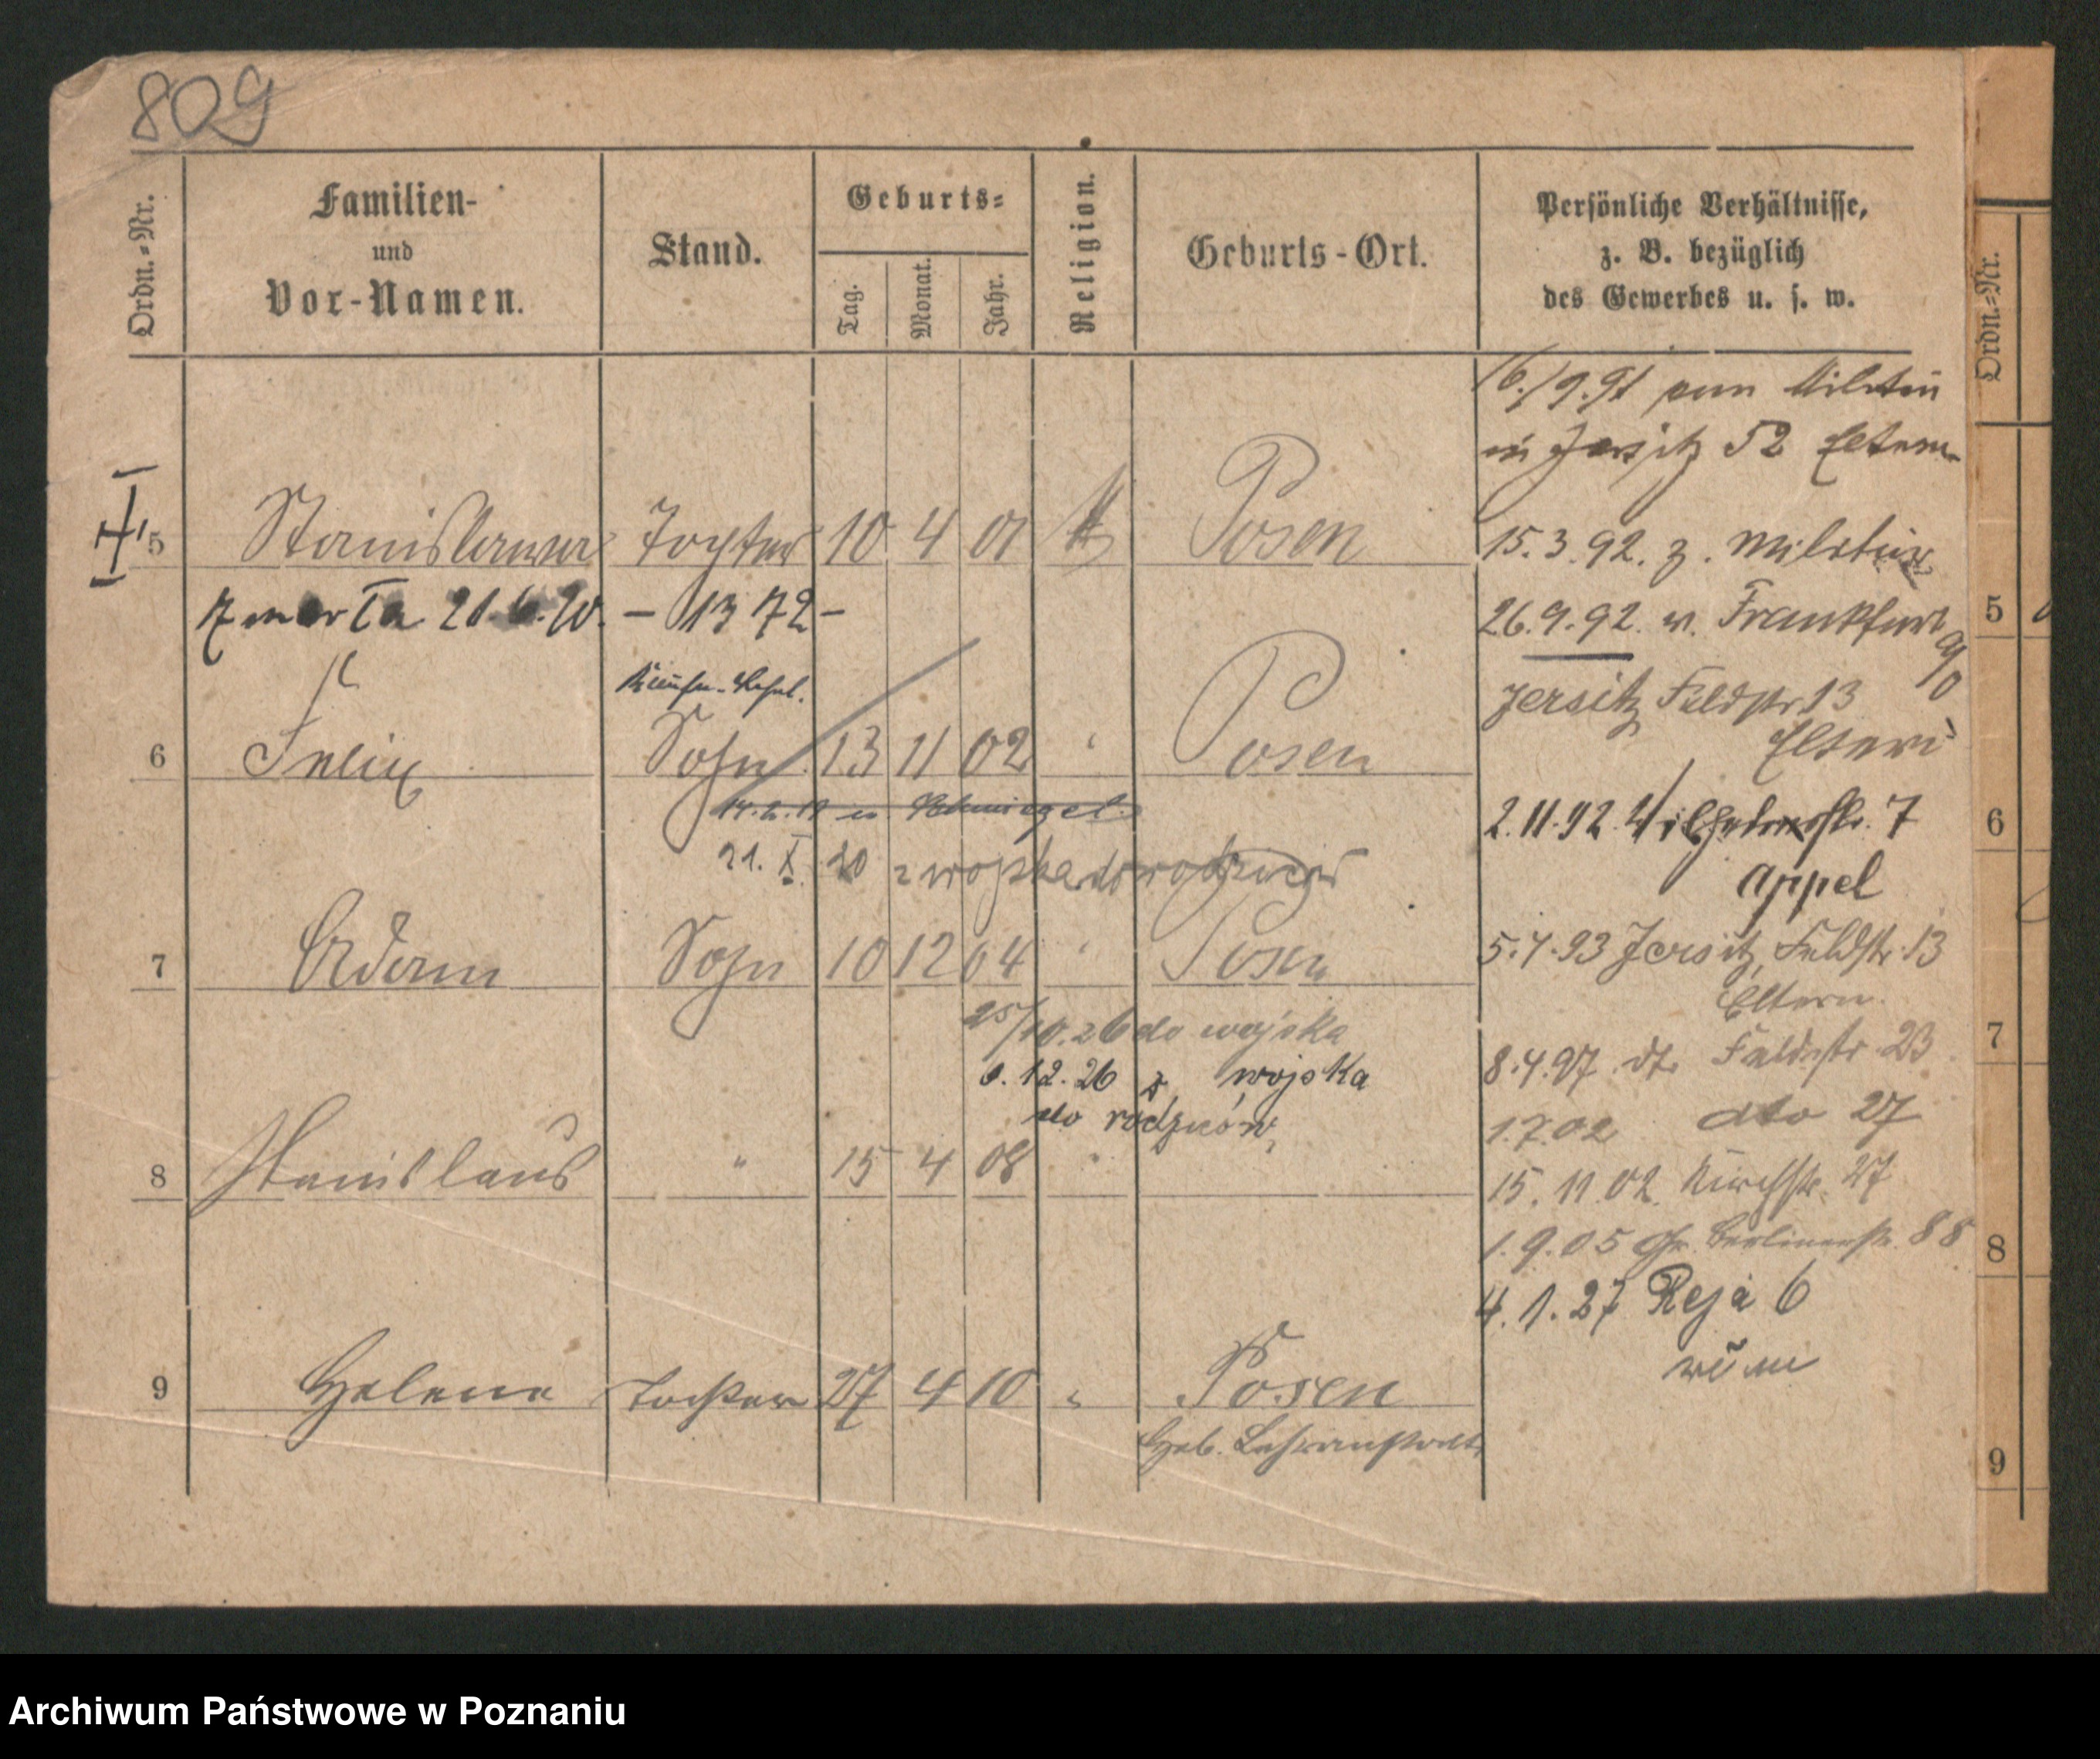 809
Ordn.=Nr.
Familien-
und
Vor-Namen.
Stand.
Geburts=
Tag.
Monat.
Jahr.
Religion.
Geburts-Ort.
Persönliche Verhältnisse,
z. B. bezüglich
des Gewerbes u. s. w.
Ordn.=Nr.
16./9.91 zum Militär
in Jersitz 52 Eltern
5 Stanislawa Tochter 10 4 01 Posen
zmarła 21.6.20. – 1372 –
15.3.92. z. Militär
26.9.92. v. Frankfurt a/O
Jersitz Feldstr 13
Eltern
6 Felix Sohn 13 11 02 " Posen
21. X. 20 z wojska do rodziców
2.11.92 Wilhelmstr. 7
Appel
7 Adam Sohn 10 12 04 " Posen
25/10.26 do wojska
12.26 z wojska
do rodziców
5.7.93 Jersitz, Feldstr. 13
Eltern.
8.4.97. dt. Feldstr 23
1.7.02 dto 27
8 Stanislaus " 15 4 08 "
15.11.02. Kirchstr. 27
1.9.05 Gr. Berlinerstr. 88
4.1.27 Reja 6
9 Helene Tochter 27 4 10 " Posen
Heb. Lehranstalt.
5
6
7
8
9
Archiwum Państwowe w Poznaniu